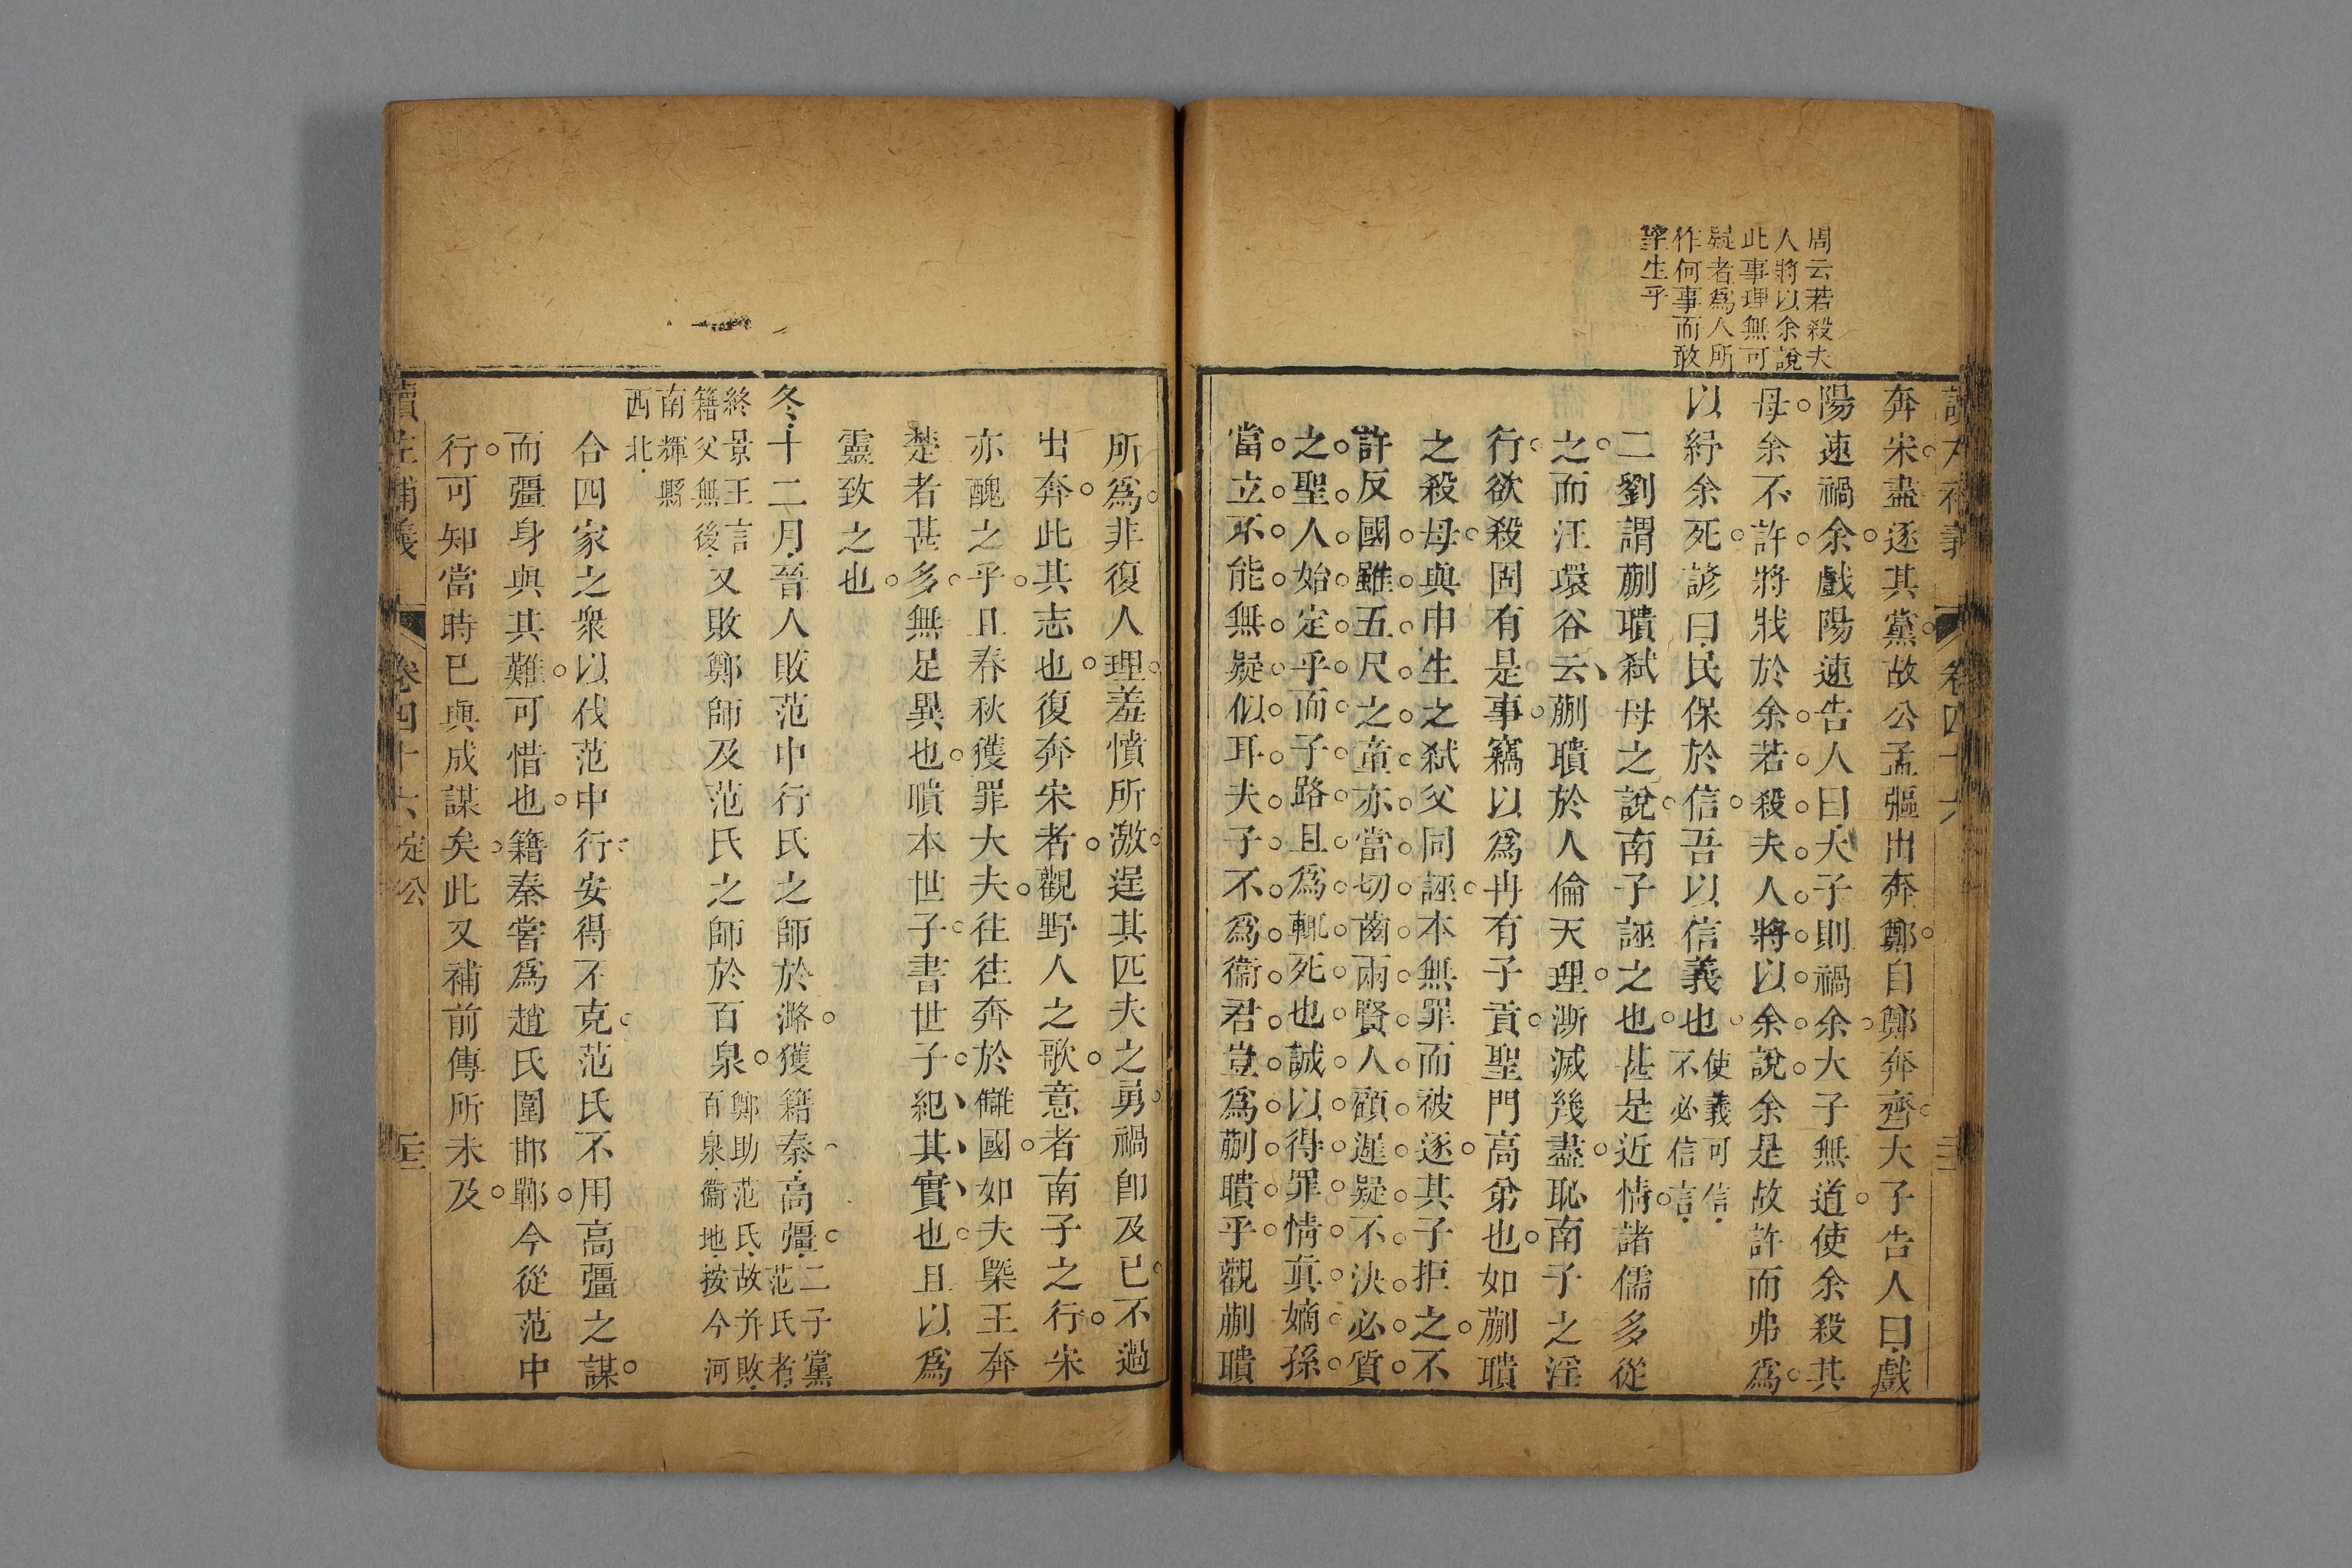 周云若殺夫
人將以余說
此事理無可
疑者爲人所
作何事而敢
望生乎
奔宋盡逐其黨故公孟彄出奔鄭自鄭奔齊大子告人曰戲
陽速禍余戲陽速告人曰大子則禍余大子無道使余殺其
母余不許將戕於余若殺夫人將以余說余是故許而弗爲
以紓余死諺曰民保於信吾以信義也使義可信
不必信言
二劉謂蒯聵弒母之說南子誣之也甚是近情諸儒多從
之而汪環谷云蒯聵於人倫天理澌滅幾盡恥南子之淫
行欲殺固有是事竊以爲冉有子貢聖門高弟也如蒯聵
之殺母與申生之弒父同誣本無罪而被逐其子拒之不
許反國雖五尺之童亦當切齒兩賢人顧遲疑不決必質
之聖人始定乎而子路且爲輒死也誠以得罪情真嫡孫
當立不能無疑似耳夫子不爲衞君豈爲蒯聵乎觀蒯聵
所爲非復人理羞憤所激逞其匹夫之勇禍卽及已不過
出奔此其志也復奔宋者觀野人之歌意者南子之行宋
亦醜之乎且春秋獲罪大夫往往奔於讎國如夫槩王奔
楚者甚多無足異也聵本世子書世子紀其實也且以爲
靈致之也
冬十二月晉人敗范中行氏之師於潞獲籍秦高彊二子黨
范氏者
終景王言
籍父無後又敗鄭師及范氏之師於百泉鄭助范氏故并敗
百泉衞地按今河
南輝縣
西北
合四家之衆以伐范中行安得不克范氏不用高彊之謀
而彊身與其難可惜也籍秦嘗爲趙氏圍邯鄲今從范中
行可知當時已與成謀矣此又補前傳所未及
讀左補義
卷四十六
定公